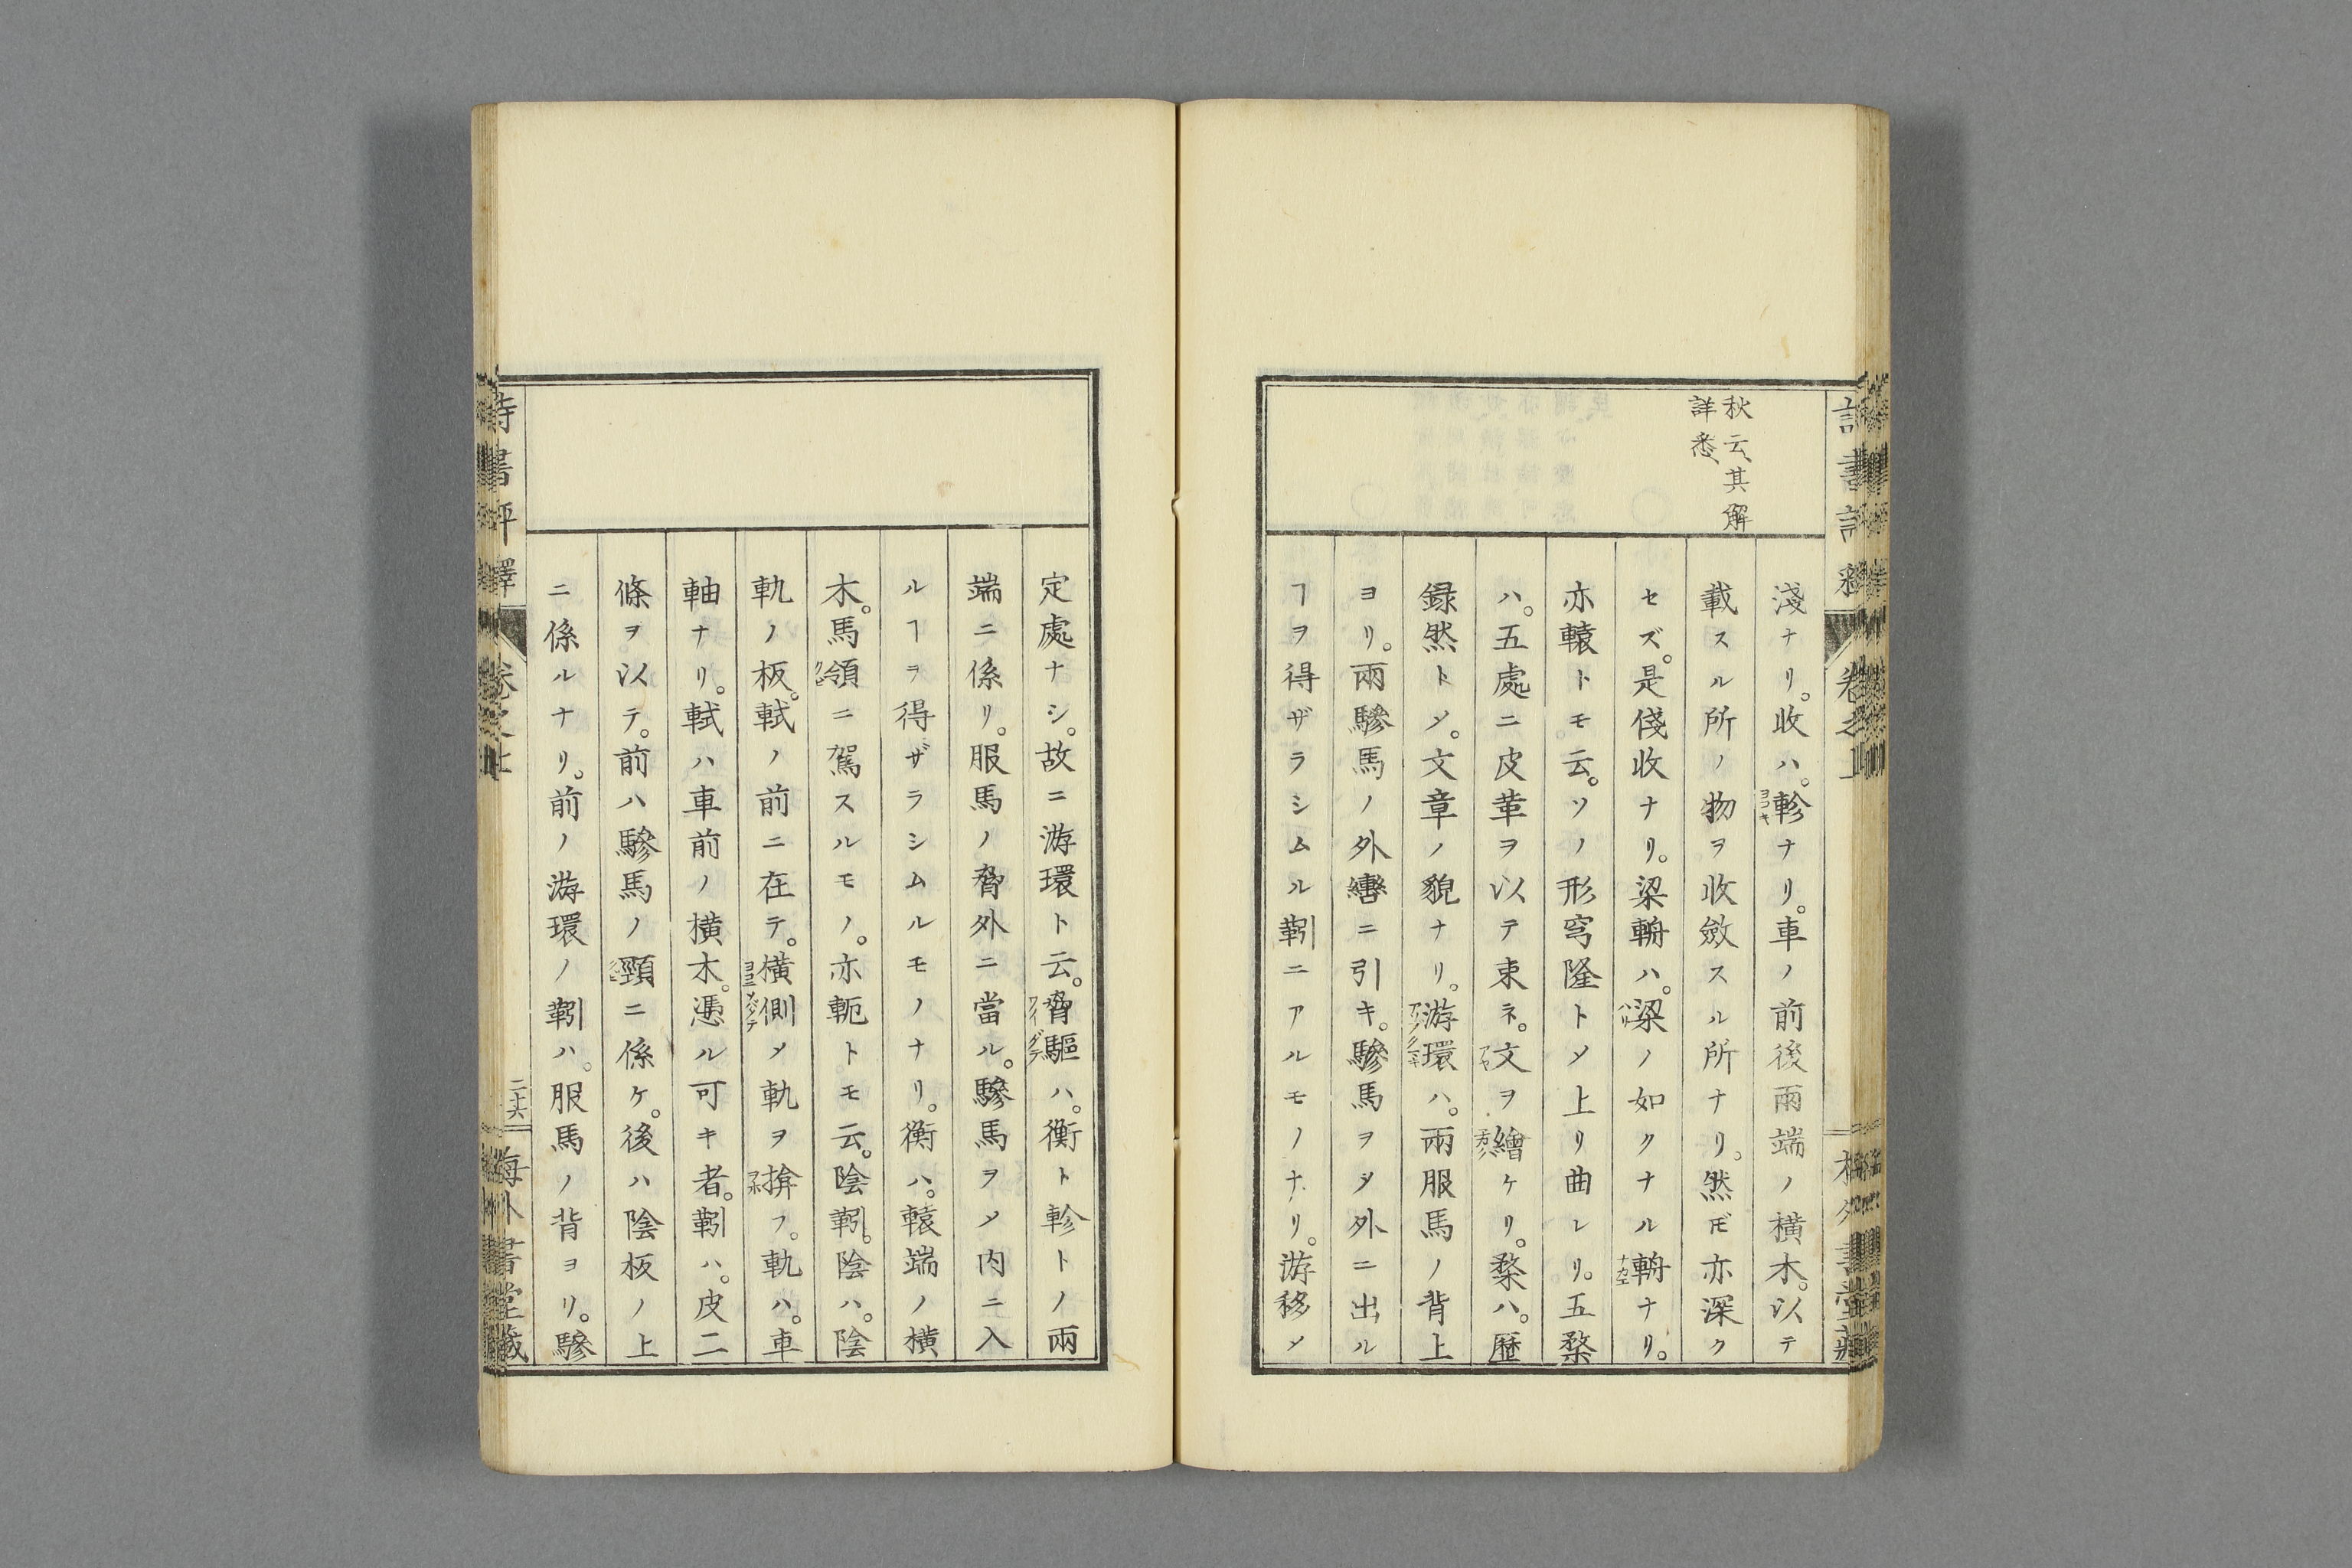 秋云、其解
詳悉、
淺ナリ。收ハ。軫ナリ。車ノ前後兩端ノ橫木。以テ
載スル所ノ物ヲ收斂スル所ナリ。然𪜈亦深ク
セズ。是俴收ナリ。梁輈ハ。梁ノ如クナル輈ナリ。
亦轅トモ云。ソノ形穹隆トメ上リ曲レリ。五楘
ハ。五處ニ皮革ヲ以テ束ネ。文ヲ繪ケリ。楘ハ。歷
録然トメ。文章ノ貌ナリ。游環ハ。兩服馬ノ背上
ヨリ。兩驂馬ノ外轡ニ引キ。驂馬ヲメ外ニ出ル
ヿヲ得ザラシムル靷ニアルモノナリ。游移メ
定處ナシ。故ニ游環ト云。脅驅ハ。衡ト軫トノ兩
端ニ係リ。服馬ノ脅外ニ當ル。驂馬ヲメ内ニ入
ルヿヲ得ザラシムルモノナリ。衡ハ。轅端ノ橫
木。馬領ニ駕スルモノ。亦軛トモ云。陰靷。陰ハ。陰
軌ノ板。軾ノ前ニ在テ。橫側メ軌ヲ揜フ。軌ハ。車
軸ナリ。軾ハ車前ノ橫木。憑ル可キ者。靷ハ。皮二
條ヲ以テ。前ハ驂馬ノ頸ニ係ケ。後ハ陰板ノ上
ニ係ルナリ。前ノ游環ノ靷ハ。服馬ノ背ヨリ。驂
詩書評釋 卷之上 二十六 梅外書堂藏